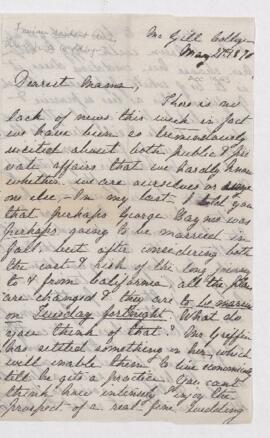 Mc Gill College
May 27th 1870
Dearest Mama,
There is no
lack of news this week in fact
we have been so tremendously
excited about both public & pri
vate affairs that we hardly know
whether we are ourselves or some
one else. In my last I told you
that perhaps George Baynes was
perhaps going to be married in
fall but after considering both
the cost & risk of the long journey
to & from California all the plans
are changed & they are to be married
on Tuesday fortnight. What do
you think of that? Mr Griffin
has settled something on her, which
will enable them to live economically
till he gets a practice. You cant
think how intensely I enjoy the
prospect of a real fine wedding